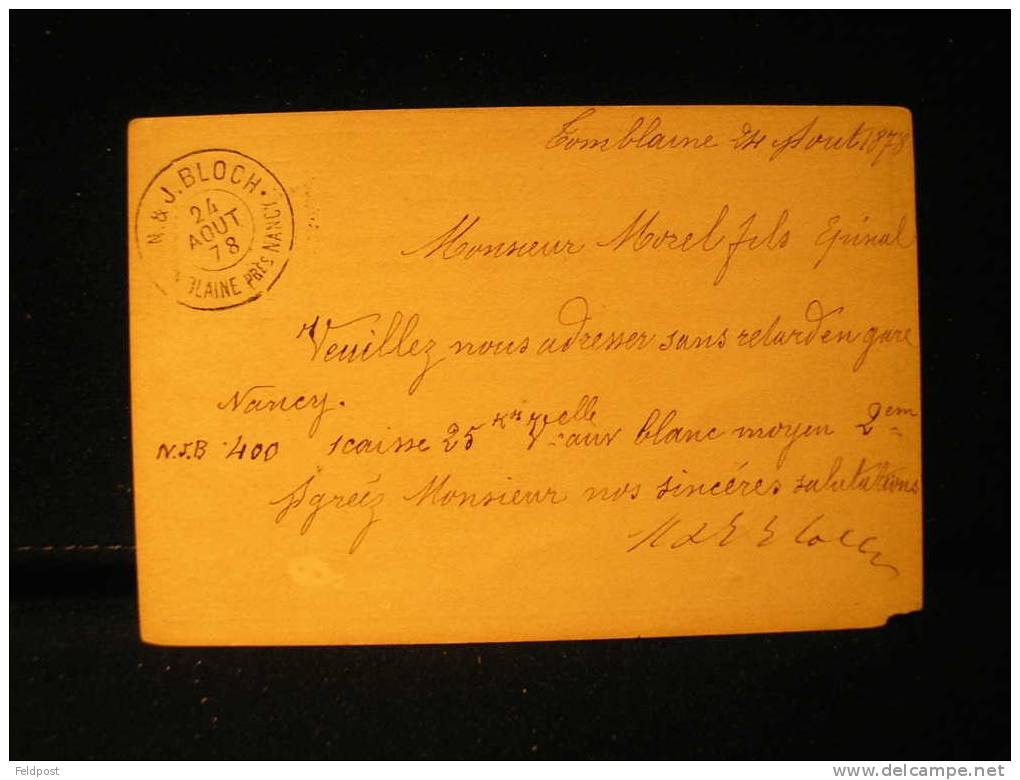 Tomblaine 24 Aout 1878
N. & J. BLOCH.
24
AOUT
78
BLAINE PRÈS NANCY
Monsieur Morel fils Epinal
Veuillez nous adresser sans retard en gare
Nancy.
N.J.B 400 1 caisse 25 Kos Velle aux blanc moyen 2em
Agréez Monsieur nos sincéres salutations
Feldpost
delcampe.net